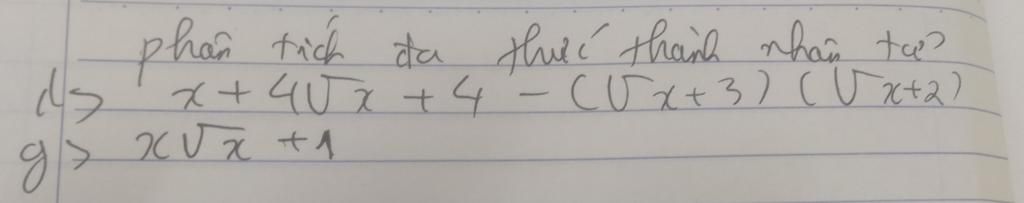 phân tích đa thức thành nhân tử
d> x + 4√x + 4 - (√x+3) (√x+2)
g> x√x + 1